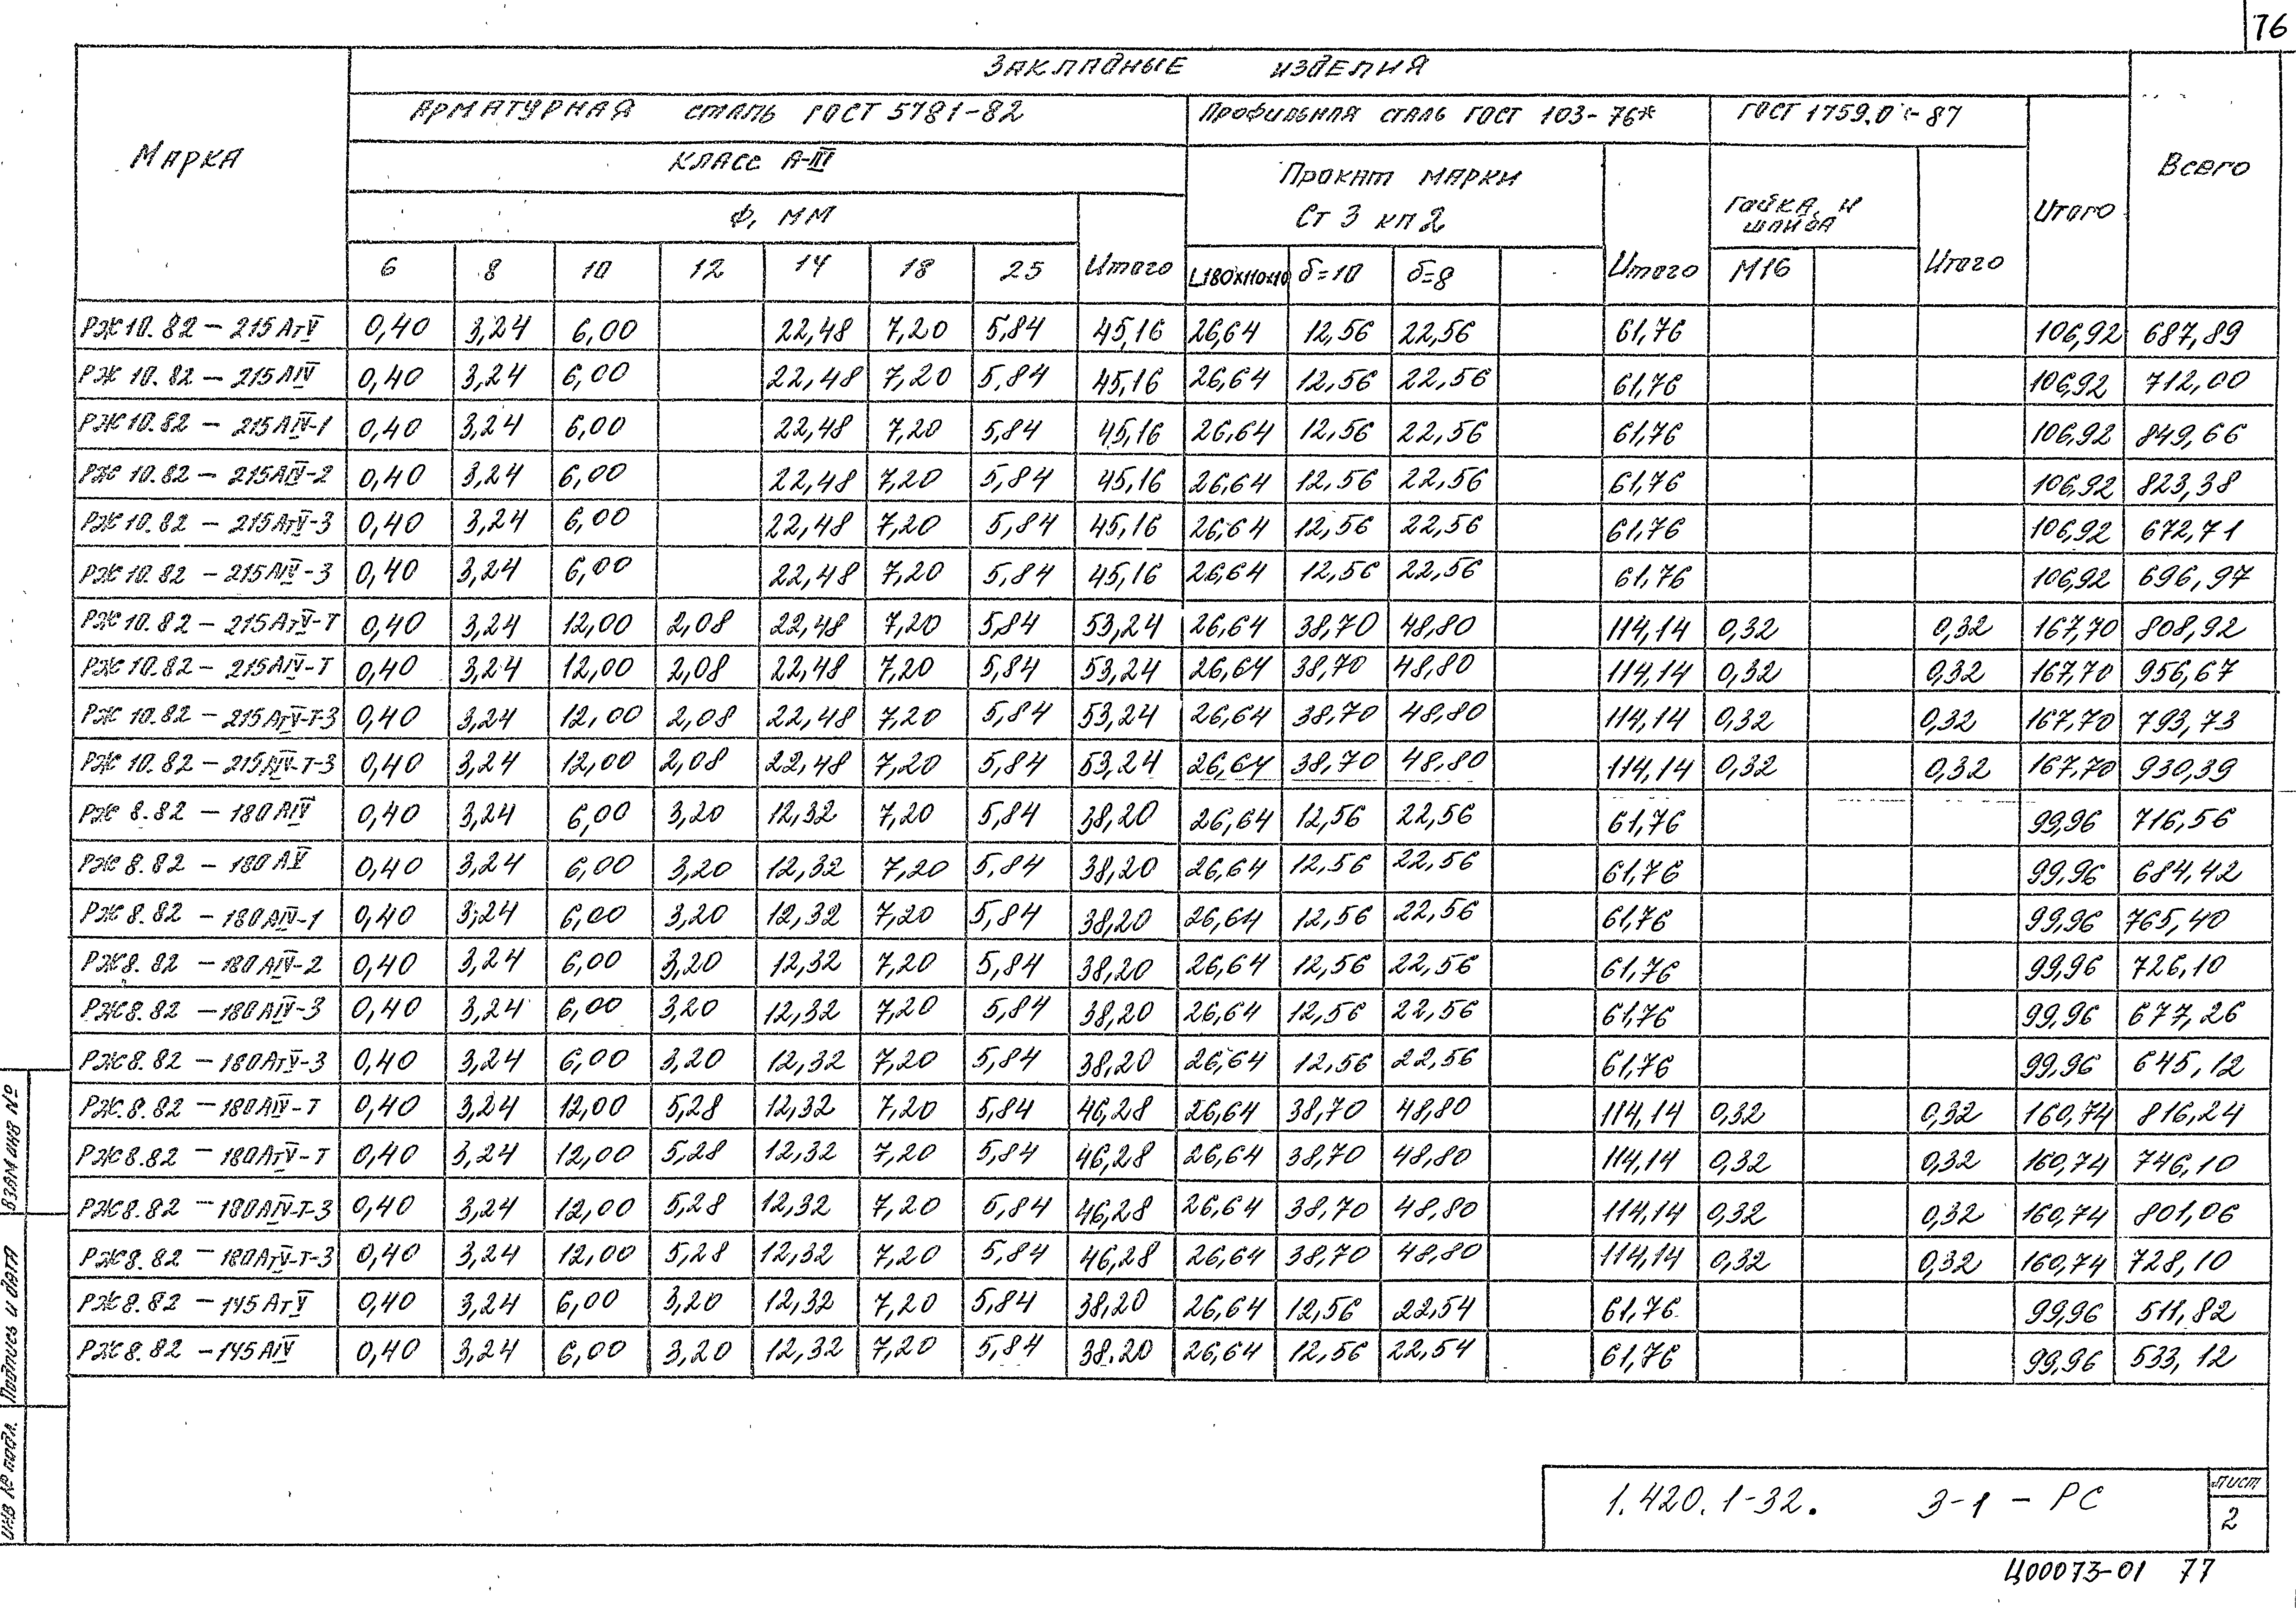 76
Закладные изделия
Марка
Арматурная сталь ГОСТ 5781-82
Профильная сталь ГОСТ 103-76*
ГОСТ 1759.0-87
Итого
Всего
Класс А-III
Прокат марки Ст 3 кп 2
Итого
Гайка и шайба
Итого
Ф, мм
Итого
6 8 10 12 14 18 25 L180х110х10 δ=10 δ=8 М16
РЖ 10.82 - 215 АтV 0,40 3,24 6,00 22,48 7,20 5,84 45,16 26,64 12,56 22,56 61,76 106,92 687,89
РЖ 10.82 - 215 АIV 0,40 3,24 6,00 22,48 7,20 5,84 45,16 26,64 12,56 22,56 61,76 106,92 712,00
РЖ 10.82 - 215 АIV-1 0,40 3,24 6,00 22,48 7,20 5,84 45,16 26,64 12,56 22,56 61,76 106,92 849,66
РЖ 10.82 - 215 АIV-2 0,40 3,24 6,00 22,48 7,20 5,84 45,16 26,64 12,56 22,56 61,76 106,92 823,38
РЖ 10.82 - 215 АтV-3 0,40 3,24 6,00 22,48 7,20 5,84 45,16 26,64 12,56 22,56 61,76 106,92 672,71
РЖ 10.82 - 215 АIV-3 0,40 3,24 6,00 22,48 7,20 5,84 45,16 26,64 12,56 22,56 61,76 106,92 696,97
РЖ 10.82 - 215 АтV-Т 0,40 3,24 12,00 2,08 22,48 7,20 5,84 53,24 26,64 38,70 48,80 114,14 0,32 0,32 167,70 808,92
РЖ 10.82 - 215 АIV-Т 0,40 3,24 12,00 2,08 22,48 7,20 5,84 53,24 26,64 38,70 48,80 114,14 0,32 0,32 167,70 956,67
РЖ 10.82 - 215 АтV-Т-3 0,40 3,24 12,00 2,08 22,48 7,20 5,84 53,24 26,64 38,70 48,80 114,14 0,32 0,32 167,70 793,73
РЖ 10.82 - 215 АIV-Т-3 0,40 3,24 12,00 2,08 22,48 7,20 5,84 53,24 26,64 38,70 48,80 114,14 0,32 0,32 167,70 930,39
РЖ 8.82 - 180 АIV 0,40 3,24 6,00 3,20 12,32 7,20 5,84 38,20 26,64 12,56 22,56 61,76 99,96 716,56
РЖ 8.82 - 180 АV 0,40 3,24 6,00 3,20 12,32 7,20 5,84 38,20 26,64 12,56 22,56 61,76 99,96 684,42
РЖ 8.82 - 180 АIV-1 0,40 3,24 6,00 3,20 12,32 7,20 5,84 38,20 26,64 12,56 22,56 61,76 99,96 765,40
РЖ 8.82 - 180 АIV-2 0,40 3,24 6,00 3,20 12,32 7,20 5,84 38,20 26,64 12,56 22,56 61,76 99,96 726,10
РЖ 8.82 - 180 АIV-3 0,40 3,24 6,00 3,20 12,32 7,20 5,84 38,20 26,64 12,56 22,56 61,76 99,96 677,26
РЖ 8.82 - 180 АтV-3 0,40 3,24 6,00 3,20 12,32 7,20 5,84 38,20 26,64 12,56 22,56 61,76 99,96 645,12
РЖ 8.82 - 180 АIV-Т 0,40 3,24 12,00 5,28 12,32 7,20 5,84 46,28 26,64 38,70 48,80 114,14 0,32 0,32 160,74 816,24
РЖ 8.82 - 180 АтV-Т 0,40 3,24 12,00 5,28 12,32 7,20 5,84 46,28 26,64 38,70 48,80 114,14 0,32 0,32 160,74 746,10
РЖ 8.82 - 180 АIV-Т-3 0,40 3,24 12,00 5,28 12,32 7,20 5,84 46,28 26,64 38,70 48,80 114,14 0,32 0,32 160,74 801,06
РЖ 8.82 - 180 АтV-Т-3 0,40 3,24 12,00 5,28 12,32 7,20 5,84 46,28 26,64 38,70 48,80 114,14 0,32 0,32 160,74 728,10
РЖ 8.82 - 145 АтV 0,40 3,24 6,00 3,20 12,32 7,20 5,84 38,20 26,64 12,56 22,54 61,76 99,96 511,82
РЖ 8.82 - 145 АIV 0,40 3,24 6,00 3,20 12,32 7,20 5,84 38.20 26,64 12,56 22,54 61,76 99,96 533,12
Взам инв №
Подпись и дата
Инв № подл.
1.420.1-32. 3-1 - РС
Лист
2
Ц00073-01 77